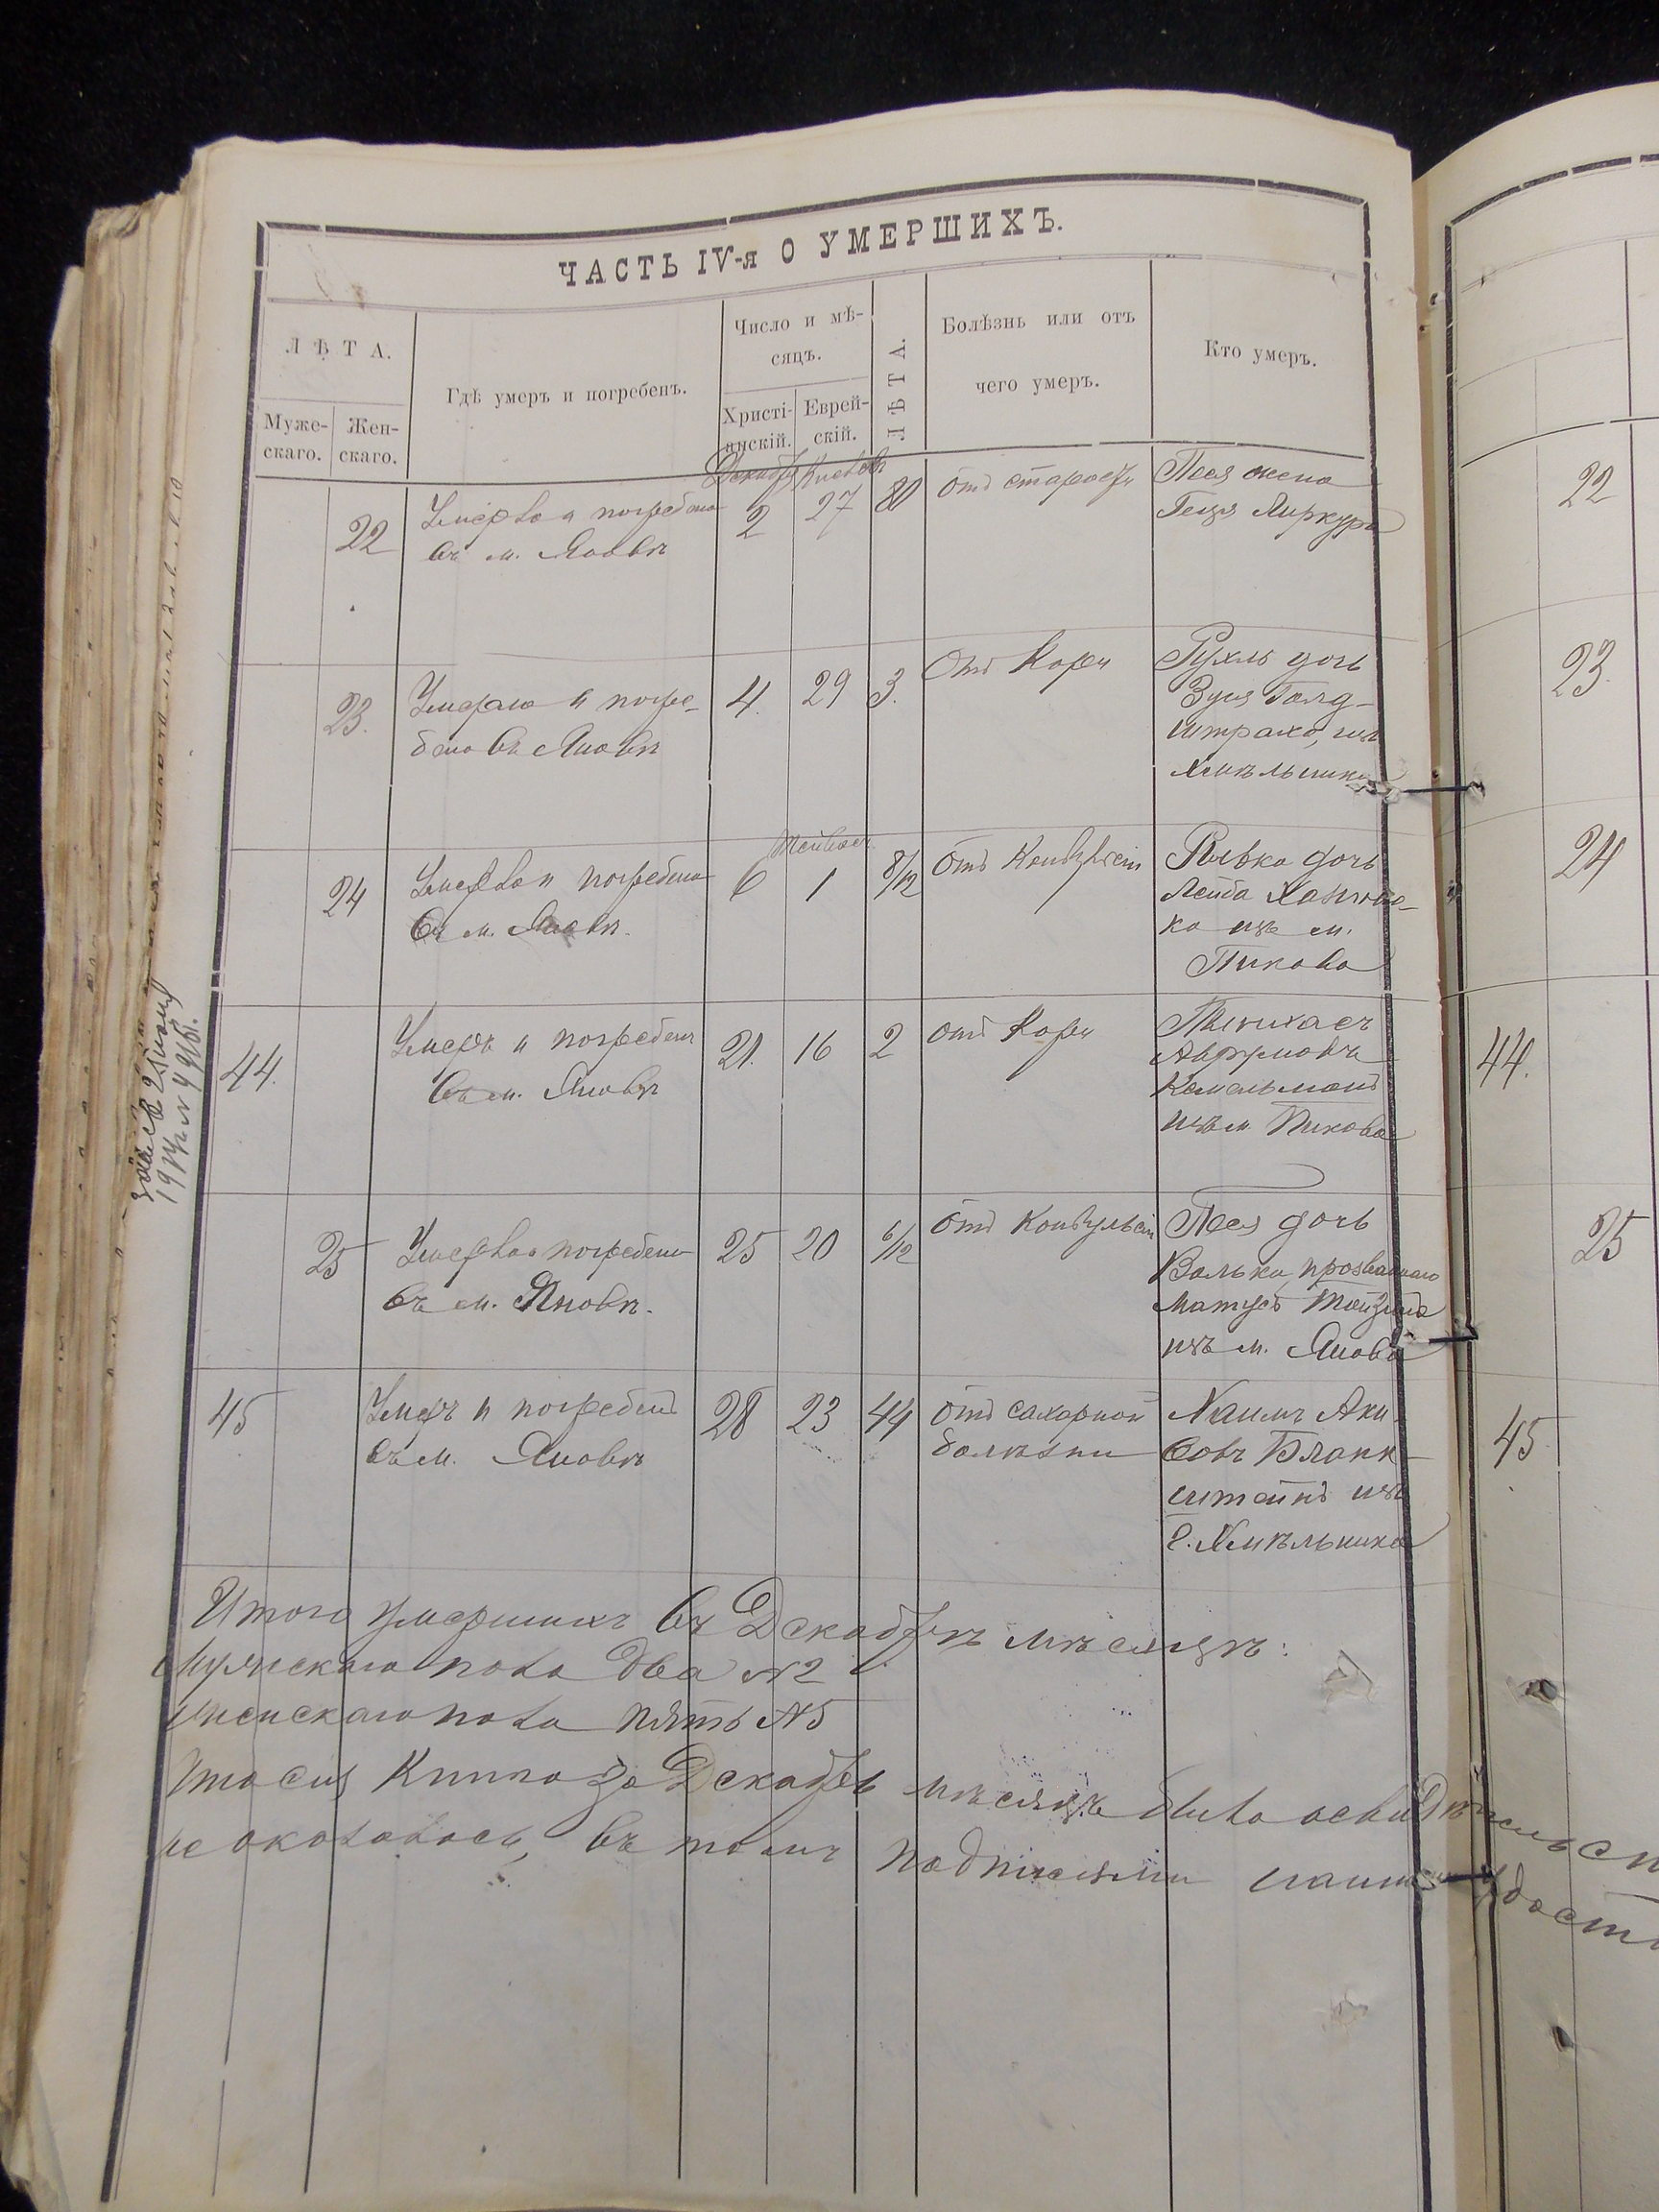 ЧАСТЬ IV-я О УМЕРШИХЪ.
ЛѢТА.
Муже-
скаго.
Жен-
скаго.
Гдѣ умеръ и погребенъ.
Число и мѣ-
сяцъ.
Христі-
анскій.
Еврей-
скій.
ЛѢТА.
Болѣзнь или отъ
чего умеръ.
Кто умеръ.
Декабрь
22
Умерла и погребена
въ м. Яновѣ
2
27
80
отъ старости
Песя жена
22
23.
Умерла и погре-
бена въ Яновѣ
4.
29
3.
Отъ Кори
Рухль дочь
Зуся Голд-
штраха, изъ
Хмѣльника
23.
24
Умерла и погребена
въ м. Яновѣ.
6
Тейвесъ
1
8/12
Отъ Конвульсіи
Ривка дочь
Лейба
ка изъ м.
Пикова
24
44.
Умеръ и погребенъ
въ м. Яновѣ
21.
16
2
отъ Кори
Пинхасъ
Аврумовъ
изъ м. Пикова
44.
25
Умерла и погребена
въ м. Яновѣ.
25
20
6/12
Отъ Конвульсіи
Песя дочь
Волька, прозваннаго
Матусъ
изъ м. Янова
25
45
Умеръ и погребенъ
въ м. Яновѣ
28
23
44
Отъ сахарной
болѣзни
Хаимъ Аки-
вовъ Бланк-
штейнъ изъ
г. Хмѣльника
45
Итого умершихъ въ Декабрѣ мѣсяцѣ:
Мужскаго пола два №2
женскаго пола пять №5
Что сія Книга за Декабрь мѣсяцъ была
не оказалось, въ томъ подписями нашими